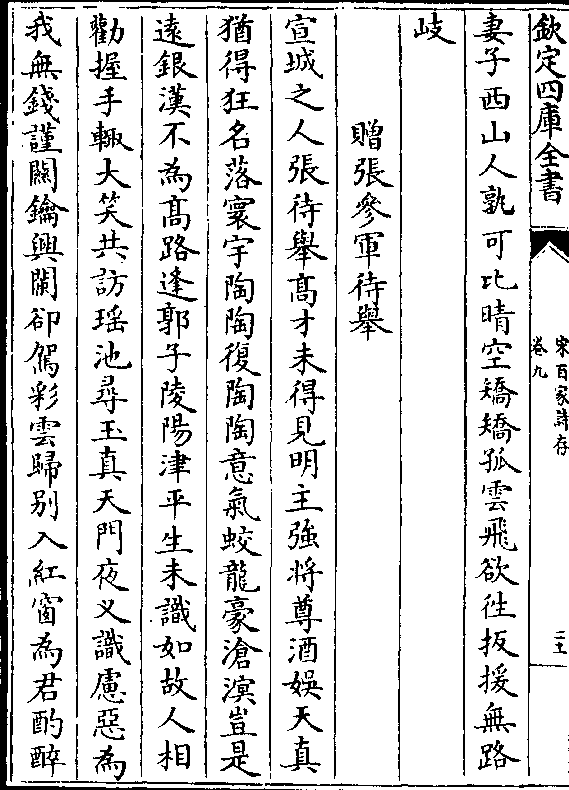 欽定四庫全書
宋百家詩存
卷九
妻子西山人孰可比晴空矯矯孤雲飛欲往扳援無路
岐
贈張參軍待舉
宣城之人張待舉髙才未得見明主強将尊酒娯天真
猶得狂名落寰宇陶陶復陶陶意氣蛟龍豪滄溟豈是
遠銀漢不為髙路逢郭子陵陽津平生未識如故人相
勸握手輙大笑共訪瑶池尋玉真天門夜乂識慮惡為
我無錢謹闗鑰興闌卻駕彩雲歸别入紅窗為君酌醉